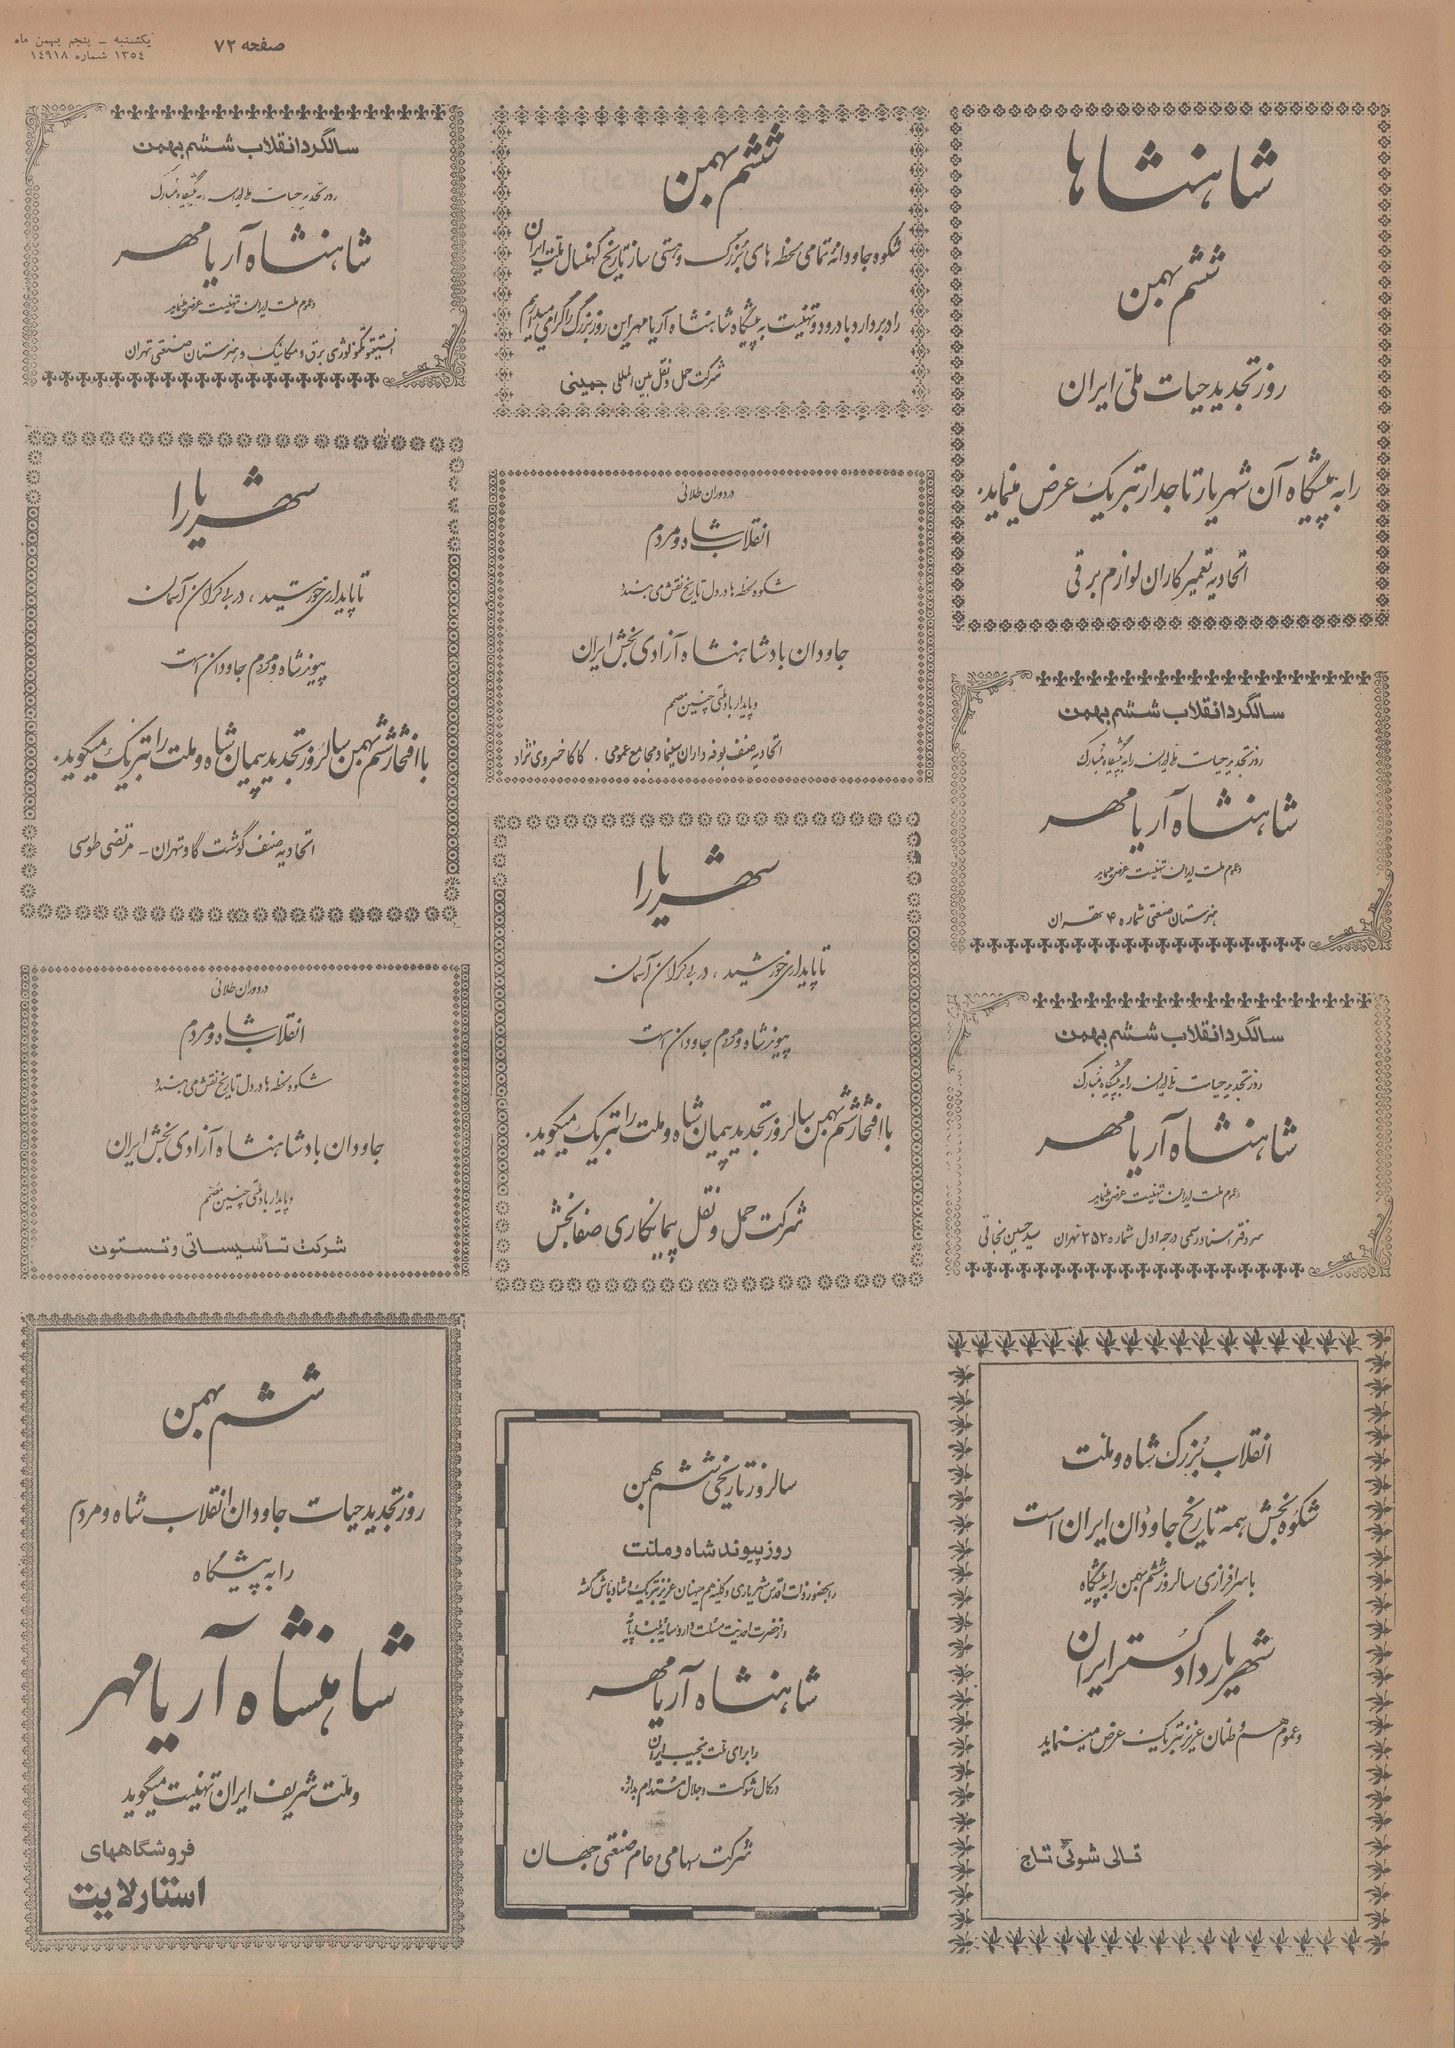 صفحه ۷۲
یکشنبه ـ پنجم بهمن ماه
۱۳۵۴ شماره ۱۴۹۱۸
شاهنشاها
ششم بهمن
روز تجدید حیات ملی ایران
را به پیشگاه آن شهریار تاجدار تبریک عرض مینماید.
اتحادیه تعمیرکاران لوازم برقی
سالگرد انقلاب ششم بهمن
روز تجدید حیات ملی ایران را به پیشگاه مبارک
شاهنشاه آریامهر
و عموم ملت ایران تهنیت عرض مینماید
هنرستان صنعتی شماره ۴ تهران
سالگرد انقلاب ششم بهمن
روز تجدید حیات ملی ایران را به پیشگاه مبارک
شاهنشاه آریامهر
و عموم ملت ایران تهنیت عرض مینماید
سردفتر اسناد رسمی درجه اول شماره ۲۵۲ تهران سید حسین نجاتی
انقلاب بزرگ شاه و ملت
شکوه بخش همه تاریخ جاودان ایران است
با سرافرازی سالروز ششم بهمن را به پیشگاه
شهریار دادگستر ایران
و عموم هم وطنان عزیز تبریک عرض مینماید
قالی شوئی تاج
ششم بهمن
شکوه جاودانه تمامی لحظه های بزرگ و هستی ساز تاریخ کهنسال ملت ایران
را در بر دارد با درود و تهنیت به پیشگاه شاهنشاه آریامهر این روز بزرگ را گرامی میداریم
شرکت حمل و نقل بین المللی جمینی
در دوران طلائی
انقلاب شاه و مردم
شکوه لحظه ها در دل تاریخ نقش می بندد
جاودان باد شاهنشاه آزادی بخش ایران
و پایدار باد ملتی چنین مصمم
اتحادیه صنف بوفه داران سینما و مجامع عمومی . کاکا خسروی نژاد
شهریارا
تا پایداری خورشید ، در بی کران آسمان
پیوند شاه و مردم جاودان است
با افتخار ششم بهمن سالروز تجدید پیمان شاه و ملت را تبریک میگوید.
شرکت حمل و نقل پیمانکاری صفابخش
سالروز تاریخی ششم بهمن
روز پیوند شاه و ملت
را بحضور ذات اقدس شهریاری و کلیه هم میهنان عزیز تبریک و شادباش گفته
و از حضرت احدیت مسئلت دارد سایه بلند پایه
شاهنشاه آریامهر
را برای ملت نجیب ایران
در کمال شوکت و جلال مستدام بدارد.
شرکت سهامی عام صنعتی جهان
سالگرد انقلاب ششم بهمن
روز تجدید حیات ملی ایران را به پیشگاه مبارک
شاهنشاه آریامهر
و عموم ملت ایران تهنیت عرض مینماید
انستیتو تکنولوژی برق و مکانیک و هنرستان صنعتی تهران
شهریارا
تا پایداری خورشید ، در بی کران آسمان
پیوند شاه و مردم جاودان است
با افتخار ششم بهمن سالروز تجدید پیمان شاه و ملت را تبریک میگوید.
اتحادیه صنف گوشت گاو تهران ـ مرتضی طوسی
در دوران طلائی
انقلاب شاه و مردم
شکوه لحظه ها در دل تاریخ نقش می بندد
جاودان باد شاهنشاه آزادی بخش ایران
و پایدار باد ملتی چنین مصمم
شرکت تأسیساتی وتستون
ششم بهمن
روز تجدید حیات جاودان انقلاب شاه و مردم
را به پیشگاه
شاهنشاه آریامهر
و ملت شریف ایران تهنیت میگوید
فروشگاههای
استارلایت